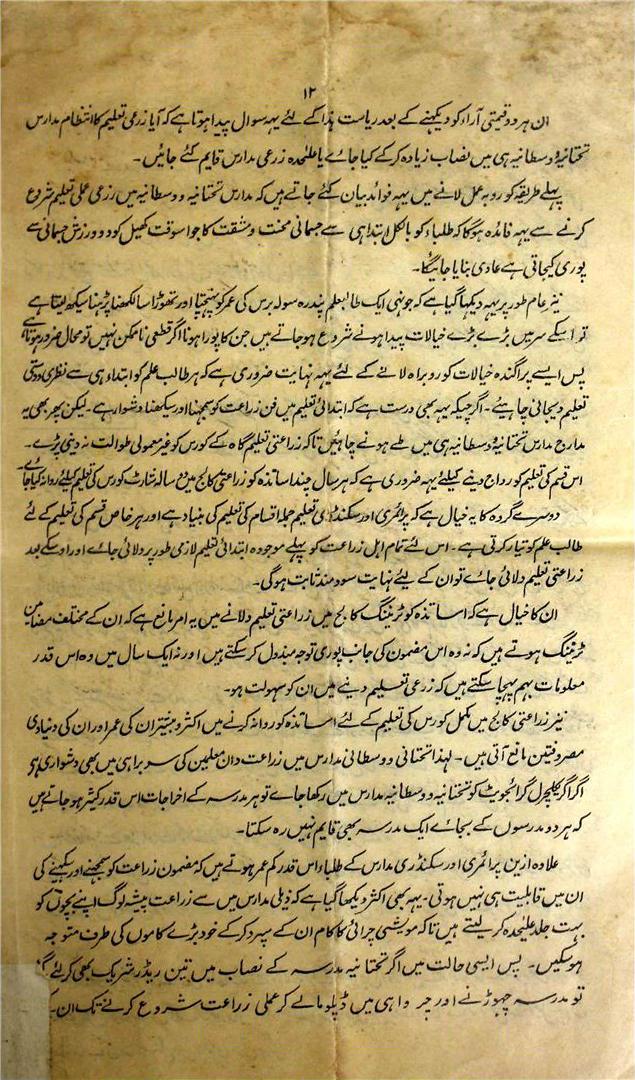 ۱۲
ان ہر دو قیمتی آراء کو دیکھنے کے بعد ریاست ہذا کے لئے یہہ سوال پیدا ہوتا ہے کہ آیا زرعی تعلیم کا انتظام مدارس
تحتانیہ و وسطانیہ ہی میں نصاب زیادہ کر کے کیا جاے یا علیٰحدہ زرعی مدارس قایم کئے جائیں۔
پہلے طریقہ کو روبہ عمل لانے میں یہہ فوائد بیان کئے جاتے ہیں کہ مدارس تحتانیہ و وسطانیہ میں زرعی عملی تعلیم شروع
کرنے سے یہہ فائدہ ہوگا کہ طلباء کو بالکل ابتدا ہی سے جسمانی محنت و مشقت کا جو اسوقت کھیل کود و ورزش جسمانی سے
پوری کیجاتی ہے عادی بنایا جائیگا۔
نیز عام طور پر یہہ دیکھا گیا ہے کہ جونہی ایک طالبعلم پندرہ سولہ برس کی عمر کو پہنچتا اور تھوڑا سا لکھنا پڑہنا سیکھ لیتا ہے
تو اسکے سر میں بڑے بڑے خیالات پیدا ہونے شروع ہو جاتے ہیں جن کا پورا ہونا اگر قطعی ناممکن نہیں تو محال ضرور ہوتا ہے
پس ایسے پراگندہ خیالات کو روبراہ لانے کے لئے یہہ نہایت ضروری ہے کہ ہر طالب علم کو ابتداء ہی سے نظری و دستی
تعلیم دیجانی چاہیئے۔ اگرچیکہ یہہ بھی درست ہے کہ ابتدائی تعلیم میں فن زراعت کو سمجہنا اور سیکھنا دشوار ہے۔ لیکن پھر بھی یہ
مدارج مدارس تحتانیہ و وسطانیہ ہی میں طے ہونے چاہئیں تاکہ زراعتی تعلیم گاہ کے کورس کو غیر معمولی طوالت نہ دینی پڑے۔
اس قسم کی تعلیم کو رواج دینے کیلئے یہہ ضروری ہے کہ ہر سال چند اساتذہ کو زراعتی کالج میں سالہ شارٹ کورس کی تعلیم کیلئے روانہ کیا جاے
دوسرے گروہ کا یہ خیال ہے کہ پرائمری اور سکنڈری تعلیم جملہ اقسام کی تعلیم کی بنیاد ہے اور ہر خاص قسم کی تعلیم کے لئے
طالب علم کو تیار کرتی ہے۔ اس لئے تمام اہل زراعت کو پہلے موجودہ ابتدائی تعلیم لازمی طور پر دلائی جاے اور اوسکے بعد
زراعتی تعلیم دلائی جاے تو ان کے لیئے نہایت سودمند ثابت ہوگی۔
ان کا خیال ہے کہ اساتذہ کو ٹریننگ کالج میں زراعتی تعلیم دلانے میں یہ امر مانع ہے کہ ان کے مختلف مضامین
ٹریننگ ہوتے ہیں کہ نہ وہ اس مضمون کی جانب پوری توجہ مبذول کر سکتے ہیں اور نہ ایک سال میں وہ اس قدر
معلومات بہم پہچا سکتے ہیں کہ زرعی تعلیم دینے میں ان کو سہولت ہو۔
نیز زراعتی کالج میں مکمل کورس کی تعلیم کے لئے اساتذہ کو روانہ کرنے میں اکثر و بیشتر ان کی عمر اور ان کی دنیاوی
مصروفیتیں مانع آتی ہیں۔ لہذا تحتانی و وسطانی مدارس میں زراعت دان معلمین کی سربراہی میں بھی دشواری ہے
اگر اگریکلچرل گرائجویٹ کو تحتانیہ و وسطانیہ مدارس میں رکھا جاے تو ہر مدرسہ کے اخراجات اس قدر کثیر ہو جاتے ہیں
کہ ہر دو مدرسوں کے بجاے ایک مدرسہ بھی قایم نہیں رہ سکتا۔
علاوہ ازین پرائمری اور سکنڈری مدارس کے طلباء اس قدر کم عمر ہوتے ہیں کہ مضمون زراعت کو سمجہنے اور سیکہنے کی
ان میں قابلیت ہی نہیں ہوتی۔ یہہ بھی اکثر دیکھا گیا ہے کہ ذیلی مدارس میں سے زراعت پیشہ لوگ اپنے بچوں کو
بہت جلد علیٰحدہ کر لیتے ہیں تاکہ مویشی چرائی کا کام ان کے سپرد کر کے خود بڑے کاموں کی طرف متوجہ
ہو سکیں۔ پس ایسی حالت میں اگر تحتانیہ مدرسہ کے نصاب میں تین ریڈر شریک بھی کر لئے
تو مدرسہ چھوڑنے اور چرواہی میں ڈپلومالے کر عملی زراعت شروع کرنے تک ان